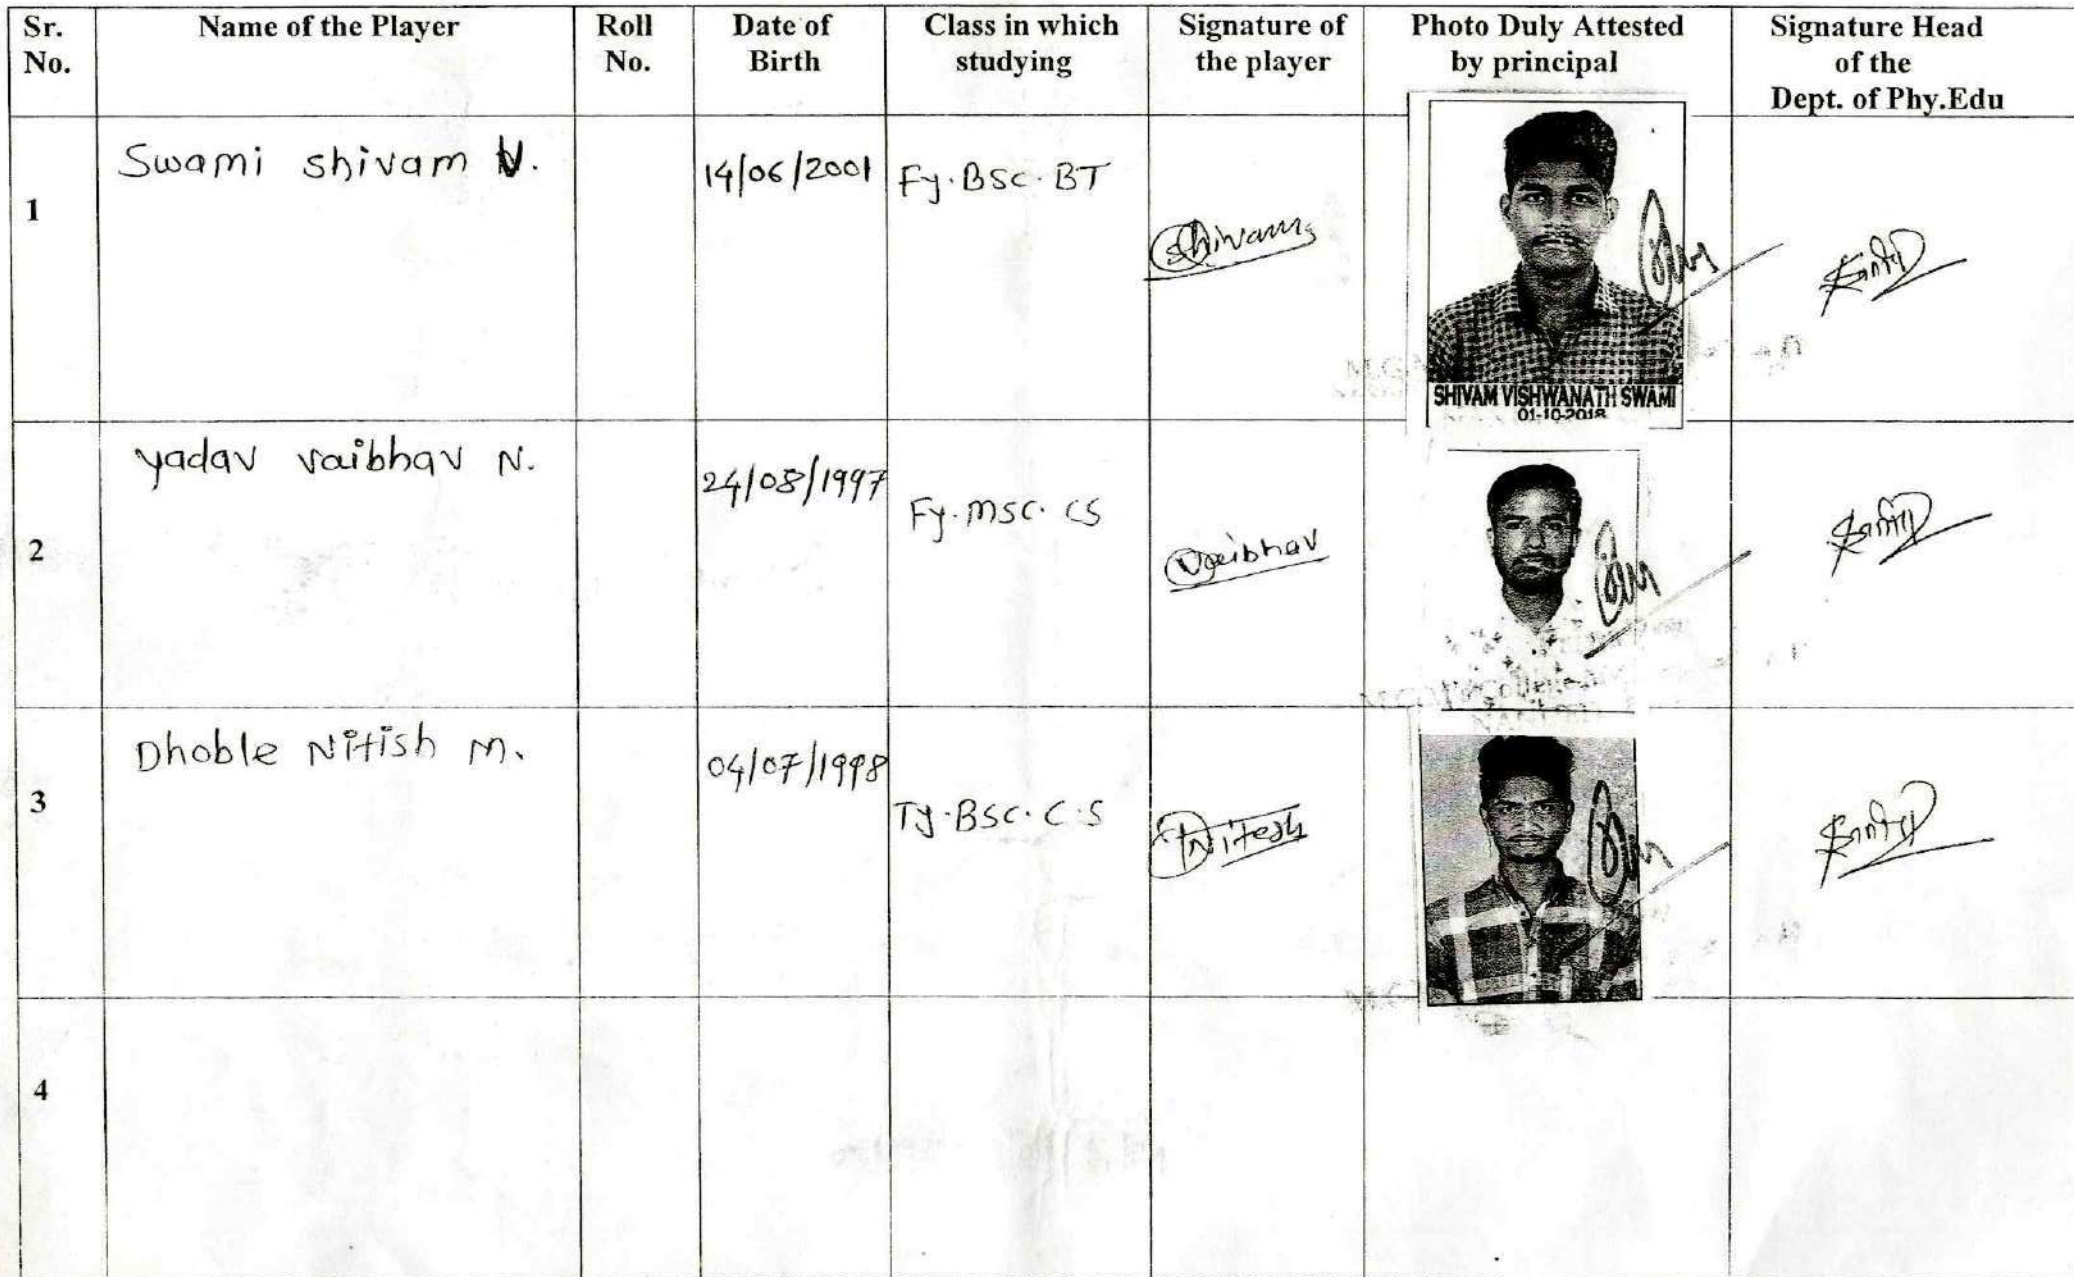 Sr. No. Name of the Player Roll No. Date of Birth Class in which studying Signature of the player Photo Duly Attested by principal Signature Head of the Dept. of Phy.Edu
1 Swami shivam V. 14/06/2001 Fy.BSc.BT Shivam
SHIVAM VISHWANATH SWAMI
01-10-2018
2 yadav vaibhav N. 24/08/1997 Fy.msc.cs Vaibhav
3 Dhoble Nitish M. 04/07/1998 Ty.BSc.C.S Nitesh
4